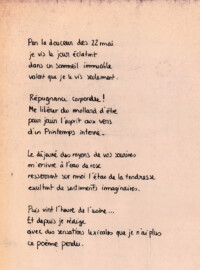 Par la douceur des 22 mai
je vis le jour éclatant
dans un sommeil immuable
valait que je le vis seulement.
Répugnance corpordre !
Me libérer du mollard d'être
pour jouir l'esprit aux vers
d'un Printemps interne...
Le déjeuné des rayons de ves sourires
m'enivre à l'eau de rose
resserrant sur moi l'étau de la tendresse
exultant de sentiments imaginaires.
Puis vint l'heure de l'usine...
Et depuis je rédige
avec des sensations lexicales que je n'ai plus
ce poème perdu.